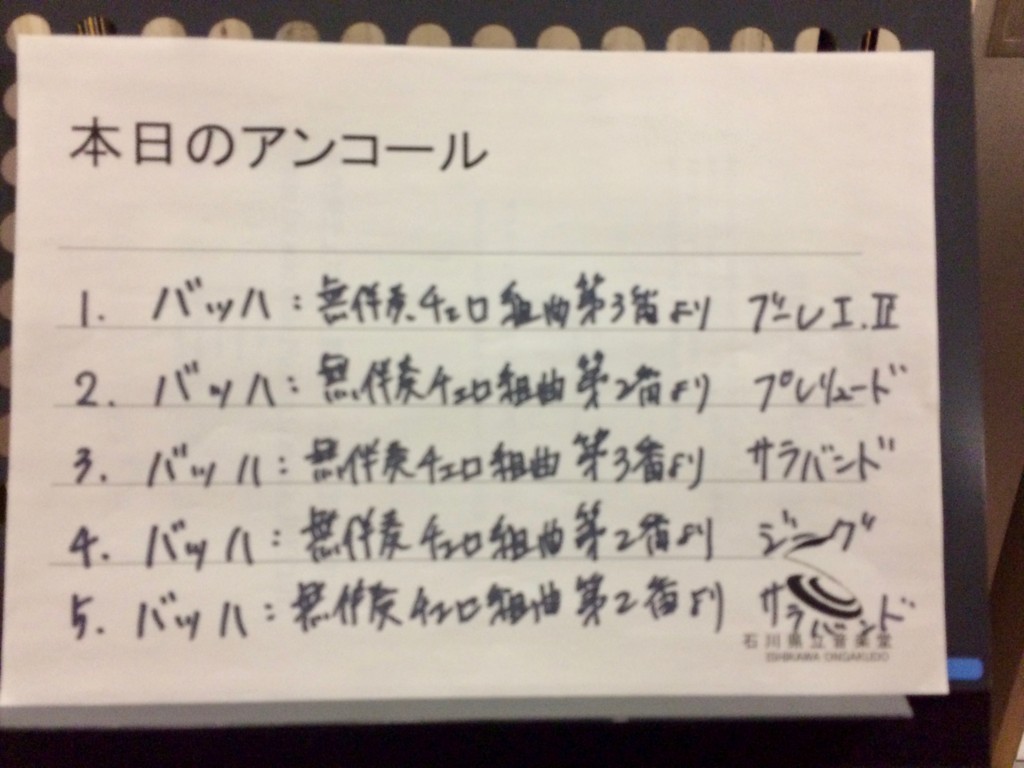 本日のアンコール
1. バッハ：無伴奏チェロ組曲第3番より ブーレI.II
2. バッハ：無伴奏チェロ組曲第2番より プレリュード
3. バッハ：無伴奏チェロ組曲第3番より サラバンド
4. バッハ：無伴奏チェロ組曲第2番より ジーグ
5. バッハ：無伴奏チェロ組曲第2番より サラバンド
石川県立音楽堂
ISHIKAWA ONGAKUDO